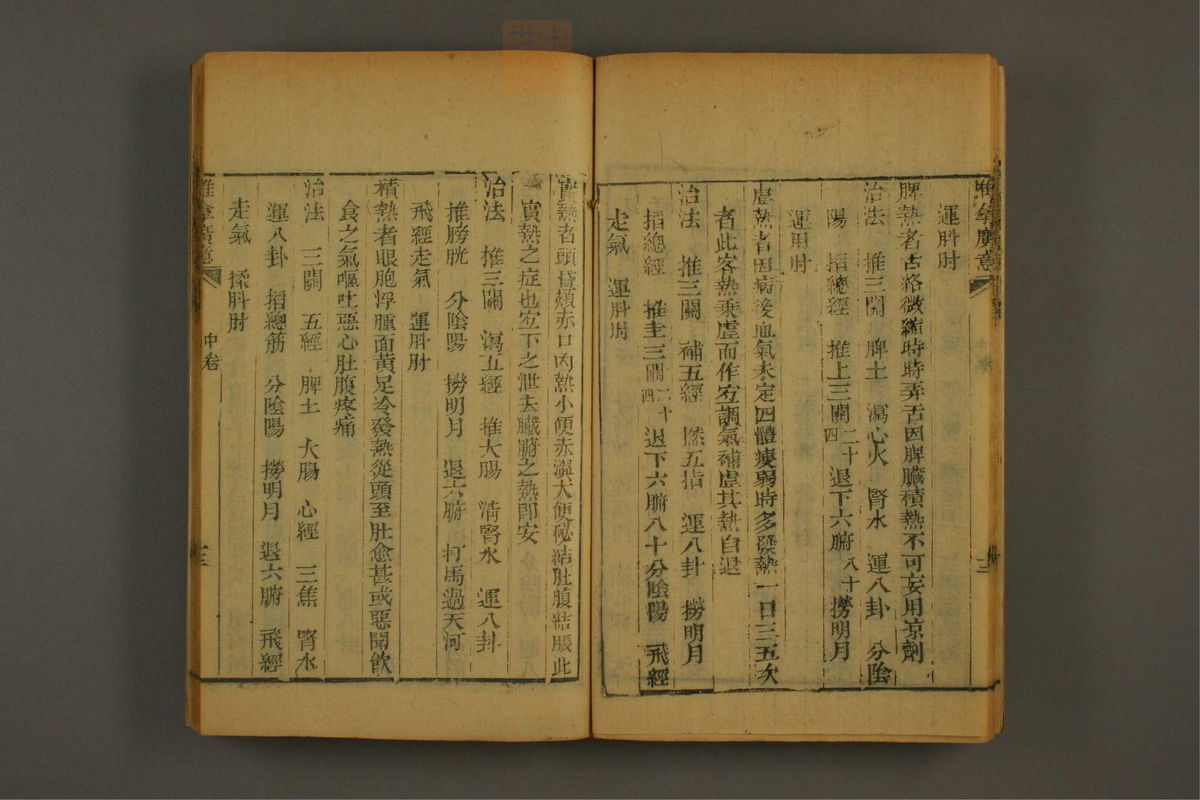 運䏔肘
脾熱者舌絡微縮時時弄舌因脾臟積熱不可妄用凉劑
治法　推三関　脾土　瀉心火　腎水　運八卦　分陰
陽　掐總經　推上三關二十四退下六腑八十撈明月
運䏔肘
虛熱者因病後血氣未定四體瘦弱時多發熱一日三五次
者此客熱乘虛而作宜調氣補虛其熱自退
治法　推三關　補五經　撚五指　運八卦　撈明月
掐總經　推上三關二十四退下六腑八十分陰陽　飛經
走氣　運䏔肘
實熱者頭昏頰赤口內熱小便赤澀大便秘結肚腹結脹此
實熱之症也宜下之泄去臟腑之熱即安
治法　推三關　瀉五經　推大腸　清腎水　運八卦
推膀胱　分陰陽　撈明月　退六腑　打馬過天河
飛經走氣　運䏔肘
積熱者眼胞浮腫面黃足冷發熱從頭至肚愈甚或惡聞飲
食之氣嘔吐惡心肚腹疼痛
治法　三關　五經　脾土　大腸　心經　三焦　腎水
運八卦　掐總筋　分陰陽　撈明月　退六腑　飛經
走氣　揉䏔肘
推拿廣意
中卷
十三